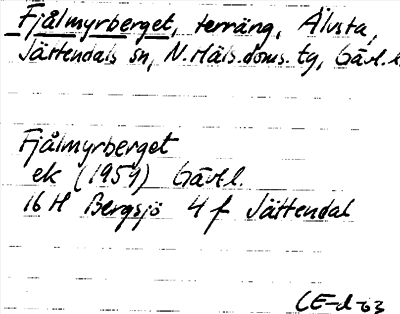 Fjålmyrberget, terräng, Älvsta,
Jättendals sn, N. Häls. doms. tg, Gävl. l
Fjålmyrberget
ek (1954) Gävl.
16 H Bergsjö 4 f Jättendal
CE-d-63